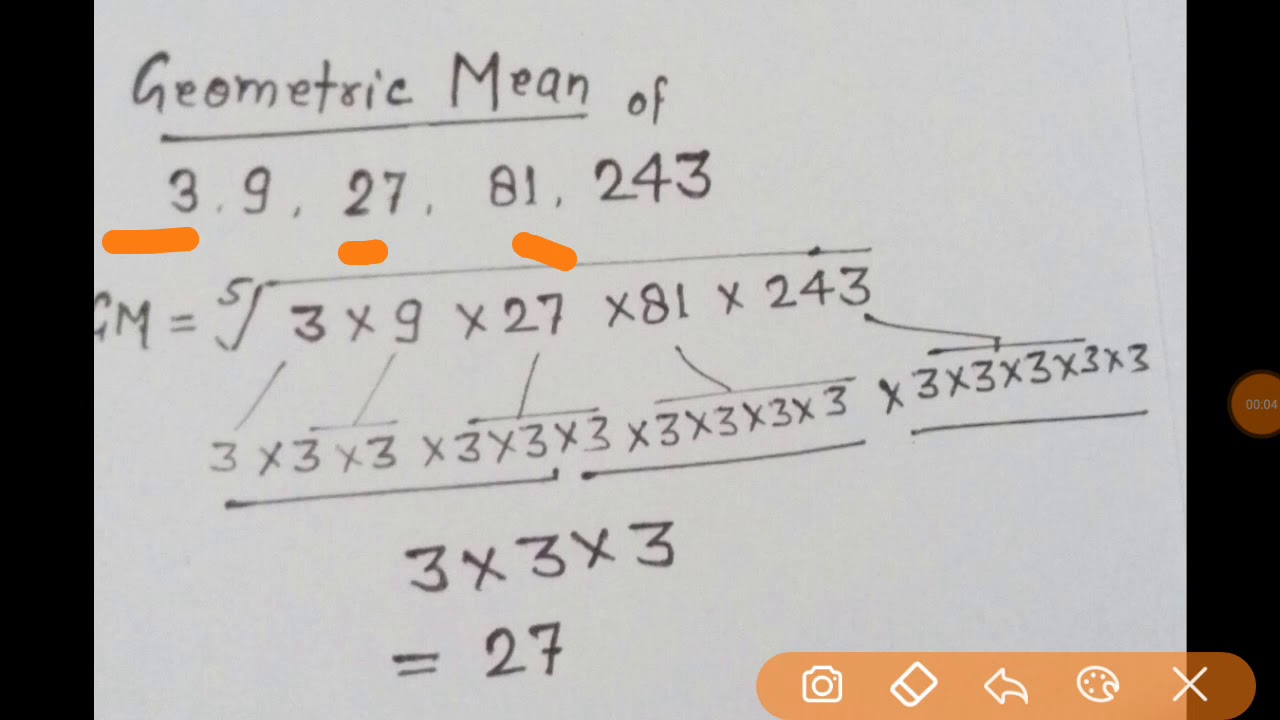 Geometric Mean of
3, 9, 27, 81, 243
GM = ⁵√3 × 9 × 27 × 81 × 243
3 × 3 × 3 × 3 × 3 × 3 × 3 × 3 × 3 × 3 × 3 × 3 × 3 × 3 × 3
3 × 3 × 3
= 27
00:04